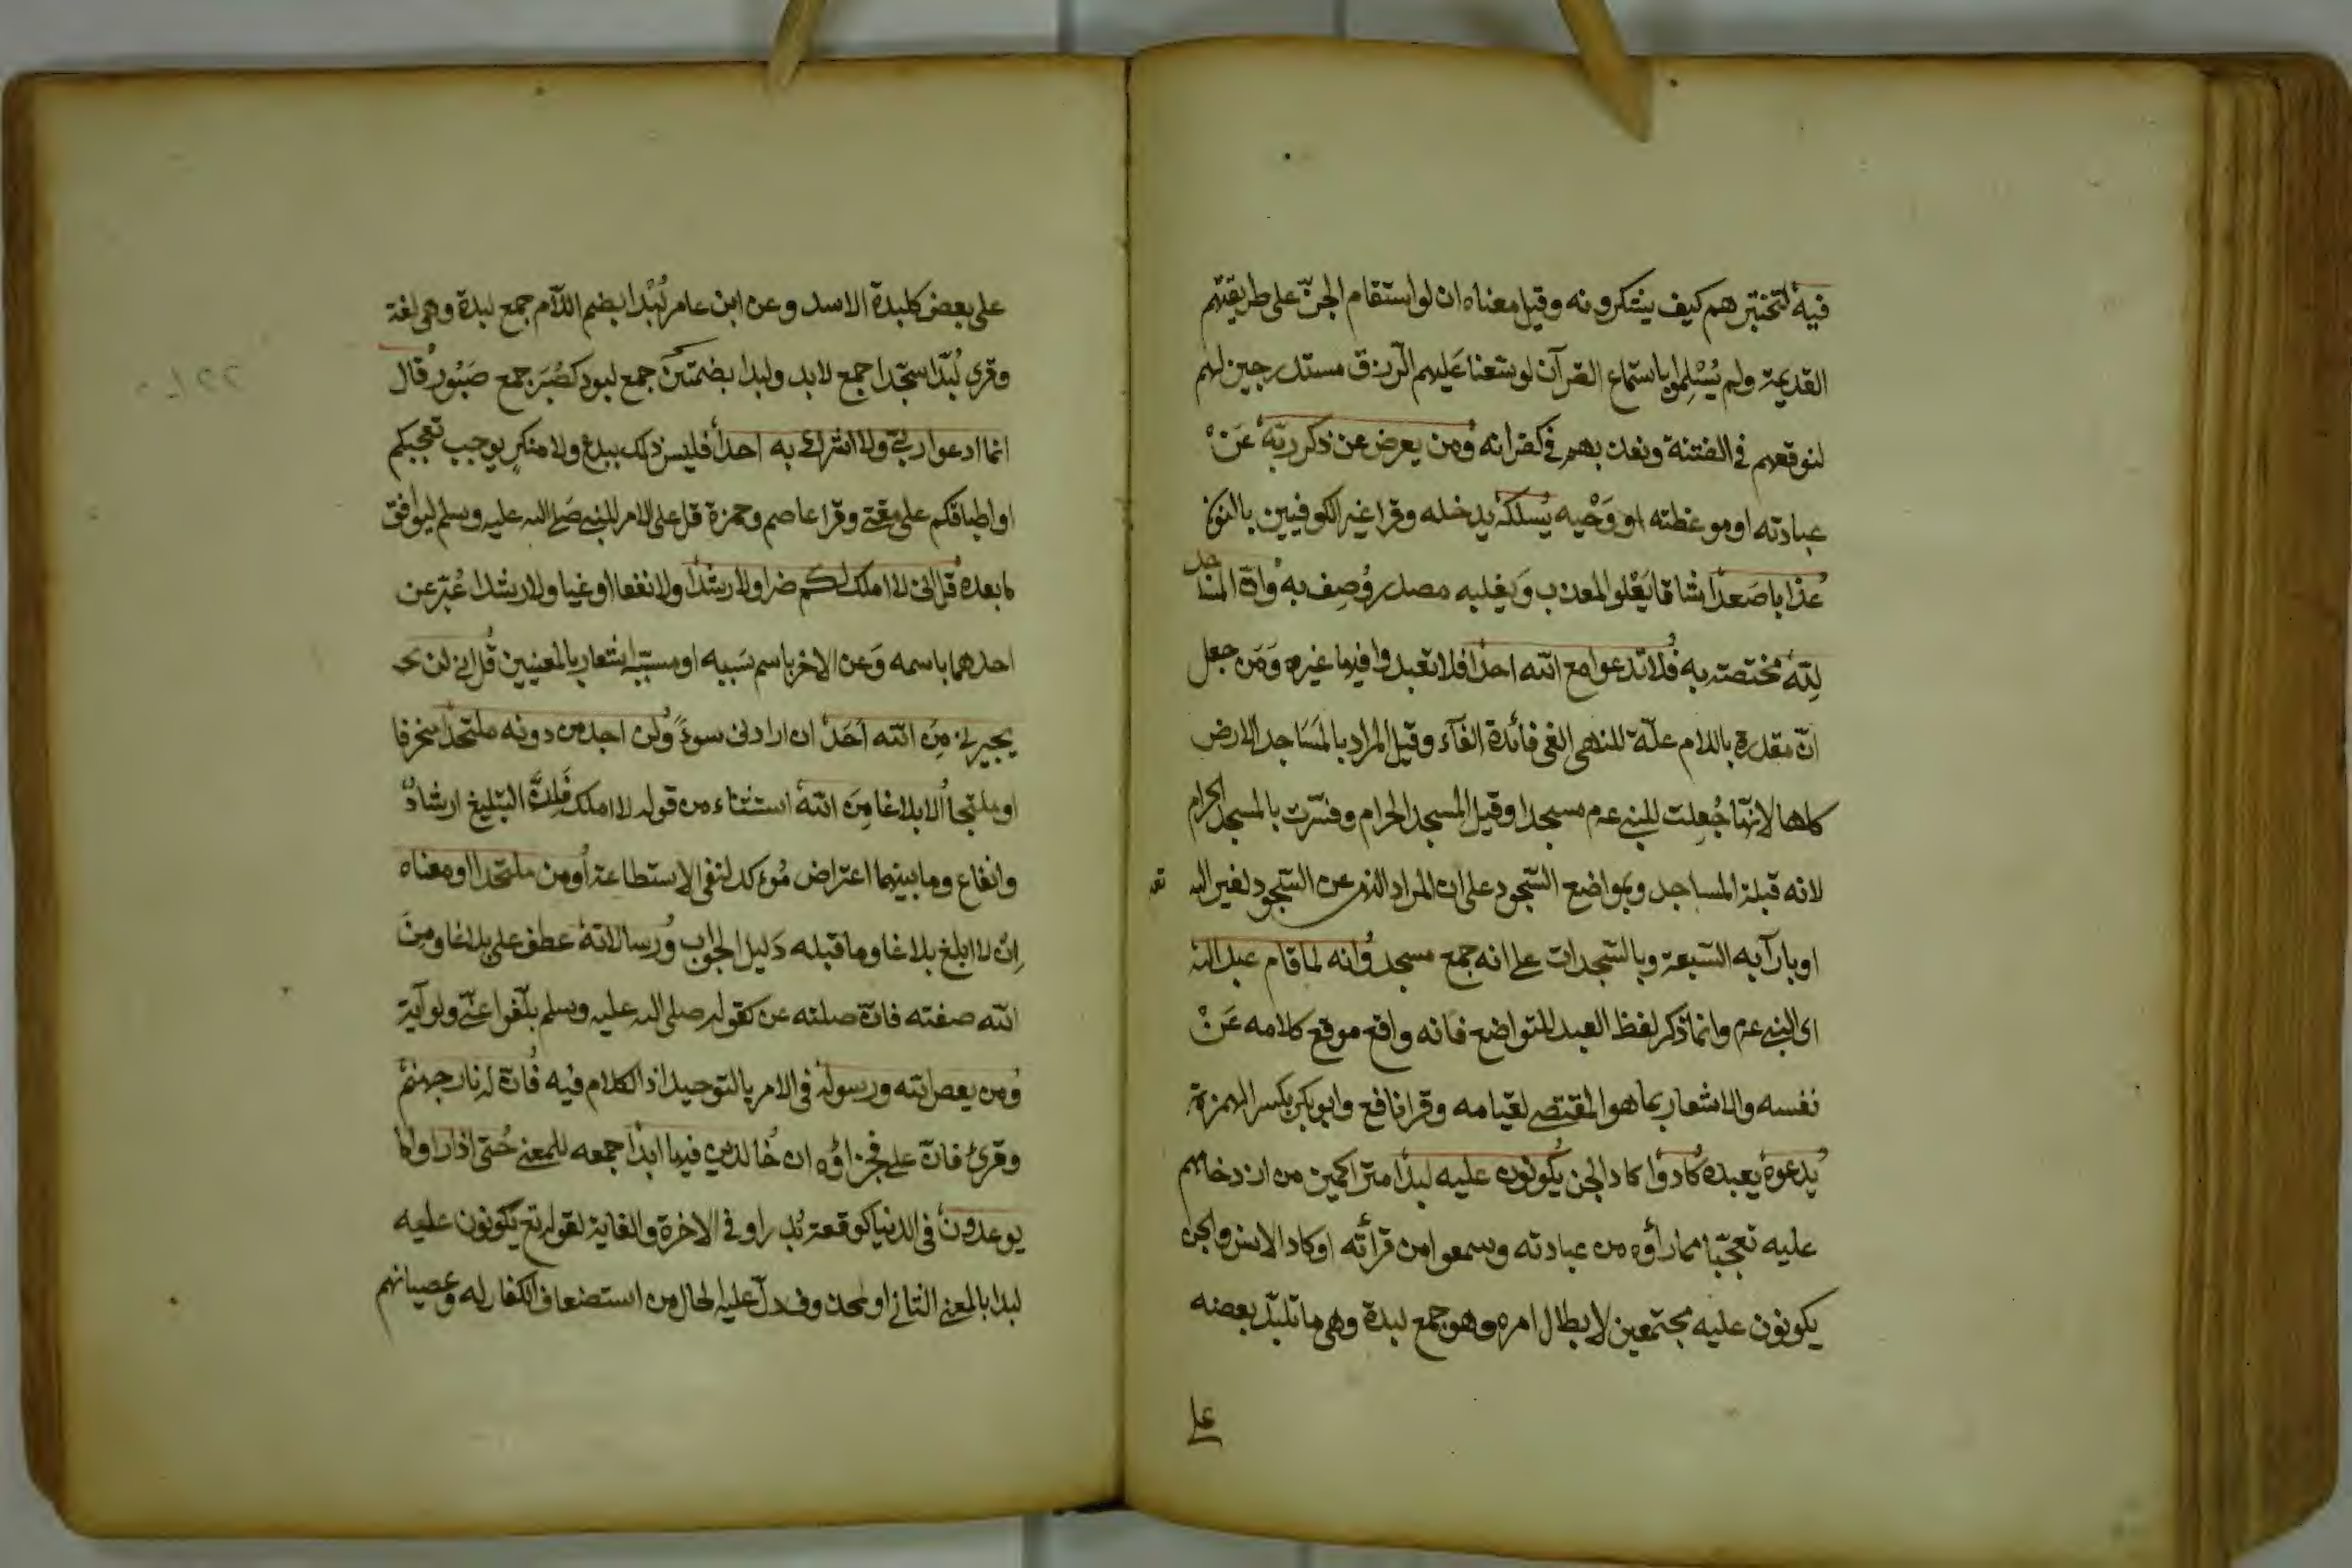 فيه لتختبرهم كيف يشكرونه وقيل معناه ان لو استقام الجنّ على طريقتهم
القديمة ولم يُسْلِموا باستماع القرآن لوسّعنا عَليهم الرزق مستدرجين لهم
لنوقعهم فى الفتنة ونعذبهم فى كفرانه ومن يعرض عن ذكر ربّه عَنْ
عبادته او موعظته او وَحْيه يَسلكه يدخله وقرا غير الكوفيين بالنون
عذابا صَعدًا شاقا يَعْلو المعذب وَيغلبه مصدر وُصِف به وانّ المساجد
لِلّه مختصة به فلا تدعوا مع الله احدا فلا تعبدوا فيها غيره وَمَن جعل
انّ مقدرة باللام علّة للنهى الغى فائدة الفآء وقيل المراد بالمسَاجد الارض
كلها لانها جُعِلت للنبى عم مسجدا وقيل المسجد الحرام وفسّرت بالمسجد الحرام
لانه قبلة المساجد وبمواضع السّجود على ان المراد النهى عن السّجود لغير الله
او بارآبه السّبعة وبالسّجدات على انه جمع مسجد وانه لما قام عبد الله
اى النبى عم وانما ذكر لفظ العبد للتواضع فانه واقع موقع كلامه عَنْ
نفسه والاشعار بما هو المقتضى لقيامه وقرا نافع وابو بكر بكسر الهمزة
يدعوه يعبده كادوا كاد الجن يكونون عليه لبدا متراكمين من ازدحامهم
عليه تعجّبا مما راؤه من عبادته وسمعوا من قرائته او كاد الانس والجن
يكونون عليه مجتمعين لابطال امره وهو جمع لبدة وهى ما تلبّد بعضه
على
على بعض كلبدة الاسد وعن ابن عامر لُبْدا بضم اللآم جمع لبدة وهى لغة
وقرئ لُبّدا سجّدا جمع لابد ولبدا بضمتين جمع لبود كصُبُر جمع صَبُور قال
انما ادعوا ربّى ولا اشرك به احدا فليس ذلك ببدع ولا منكرٍ يوجب تعجبكم
او اطباقكم على مقتى وقرا عاصم وحمزة قل على الامر للنبى صلى الله عليه وسلم ليوافق
ما بعده قل انى لا املك لكم ضرا ولا رشدا ولا نفعا او غيا ولا رشدا عُبّر عن
احدهما باسمه وَعن الاخر باسم سَببه او مسببه اشعار بالمعنيين قل انى لن
يجيرنى مِن الله اَحَد ان ارادنى بسوء ولن اجد من دونه ملتحدا منحرفا
او ملتجأ الا بلاغا مِنَ الله استثناء من قوله لا املك فانّ التبليغ ارشادٌ
وانفاع وما بينهما اعتراض مُوءكد لنفى الاستطاعة او من ملتحدا او معناه
اِن لا ابلغ بلاغا وما قبله دَليل الجواب ورسالاته عطف على بلاغا ومِنَ
الله صفته فانّ صلته عن كقوله صلى الله عليه وسلم بلّغوا عنّى ولو آية
ومن يعص الله ورسوله فى الامر بالتوحيد اذ الكلام فيه فانّ له نار جهنم
وقرئ فانّ على فجزاؤه ان خالدين فيها ابدا جمعه للمعنى حتى اذا راوا ما
يوعدون فى الدنيا كوقعة بدر او فى الاخرة والغاية لقوله تع يكونون عليه
لبدا بالمعنى الثانى او لمحذوف دلّ عليه الحال من استضعاف الكفار له وعصيانهم